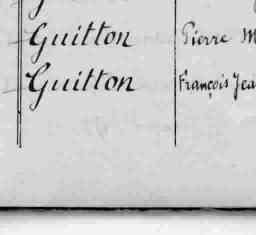 Guitton Pierre M
Guitton François Jea